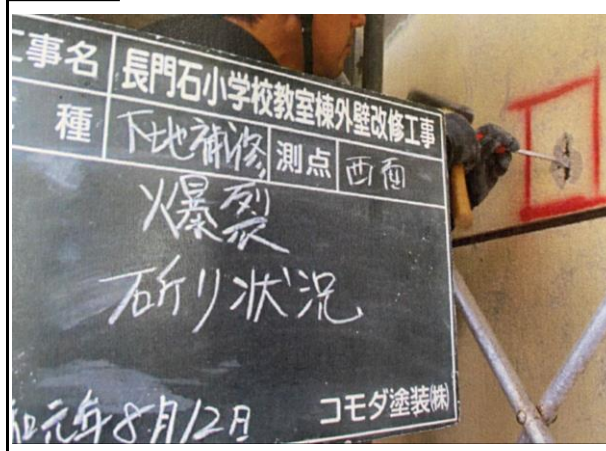 工事名 長門石小学校教室棟外壁改修工事
種 下地補修 測点 西面
爆裂
斫り状況
和元年8月12日
コモダ塗装㈱